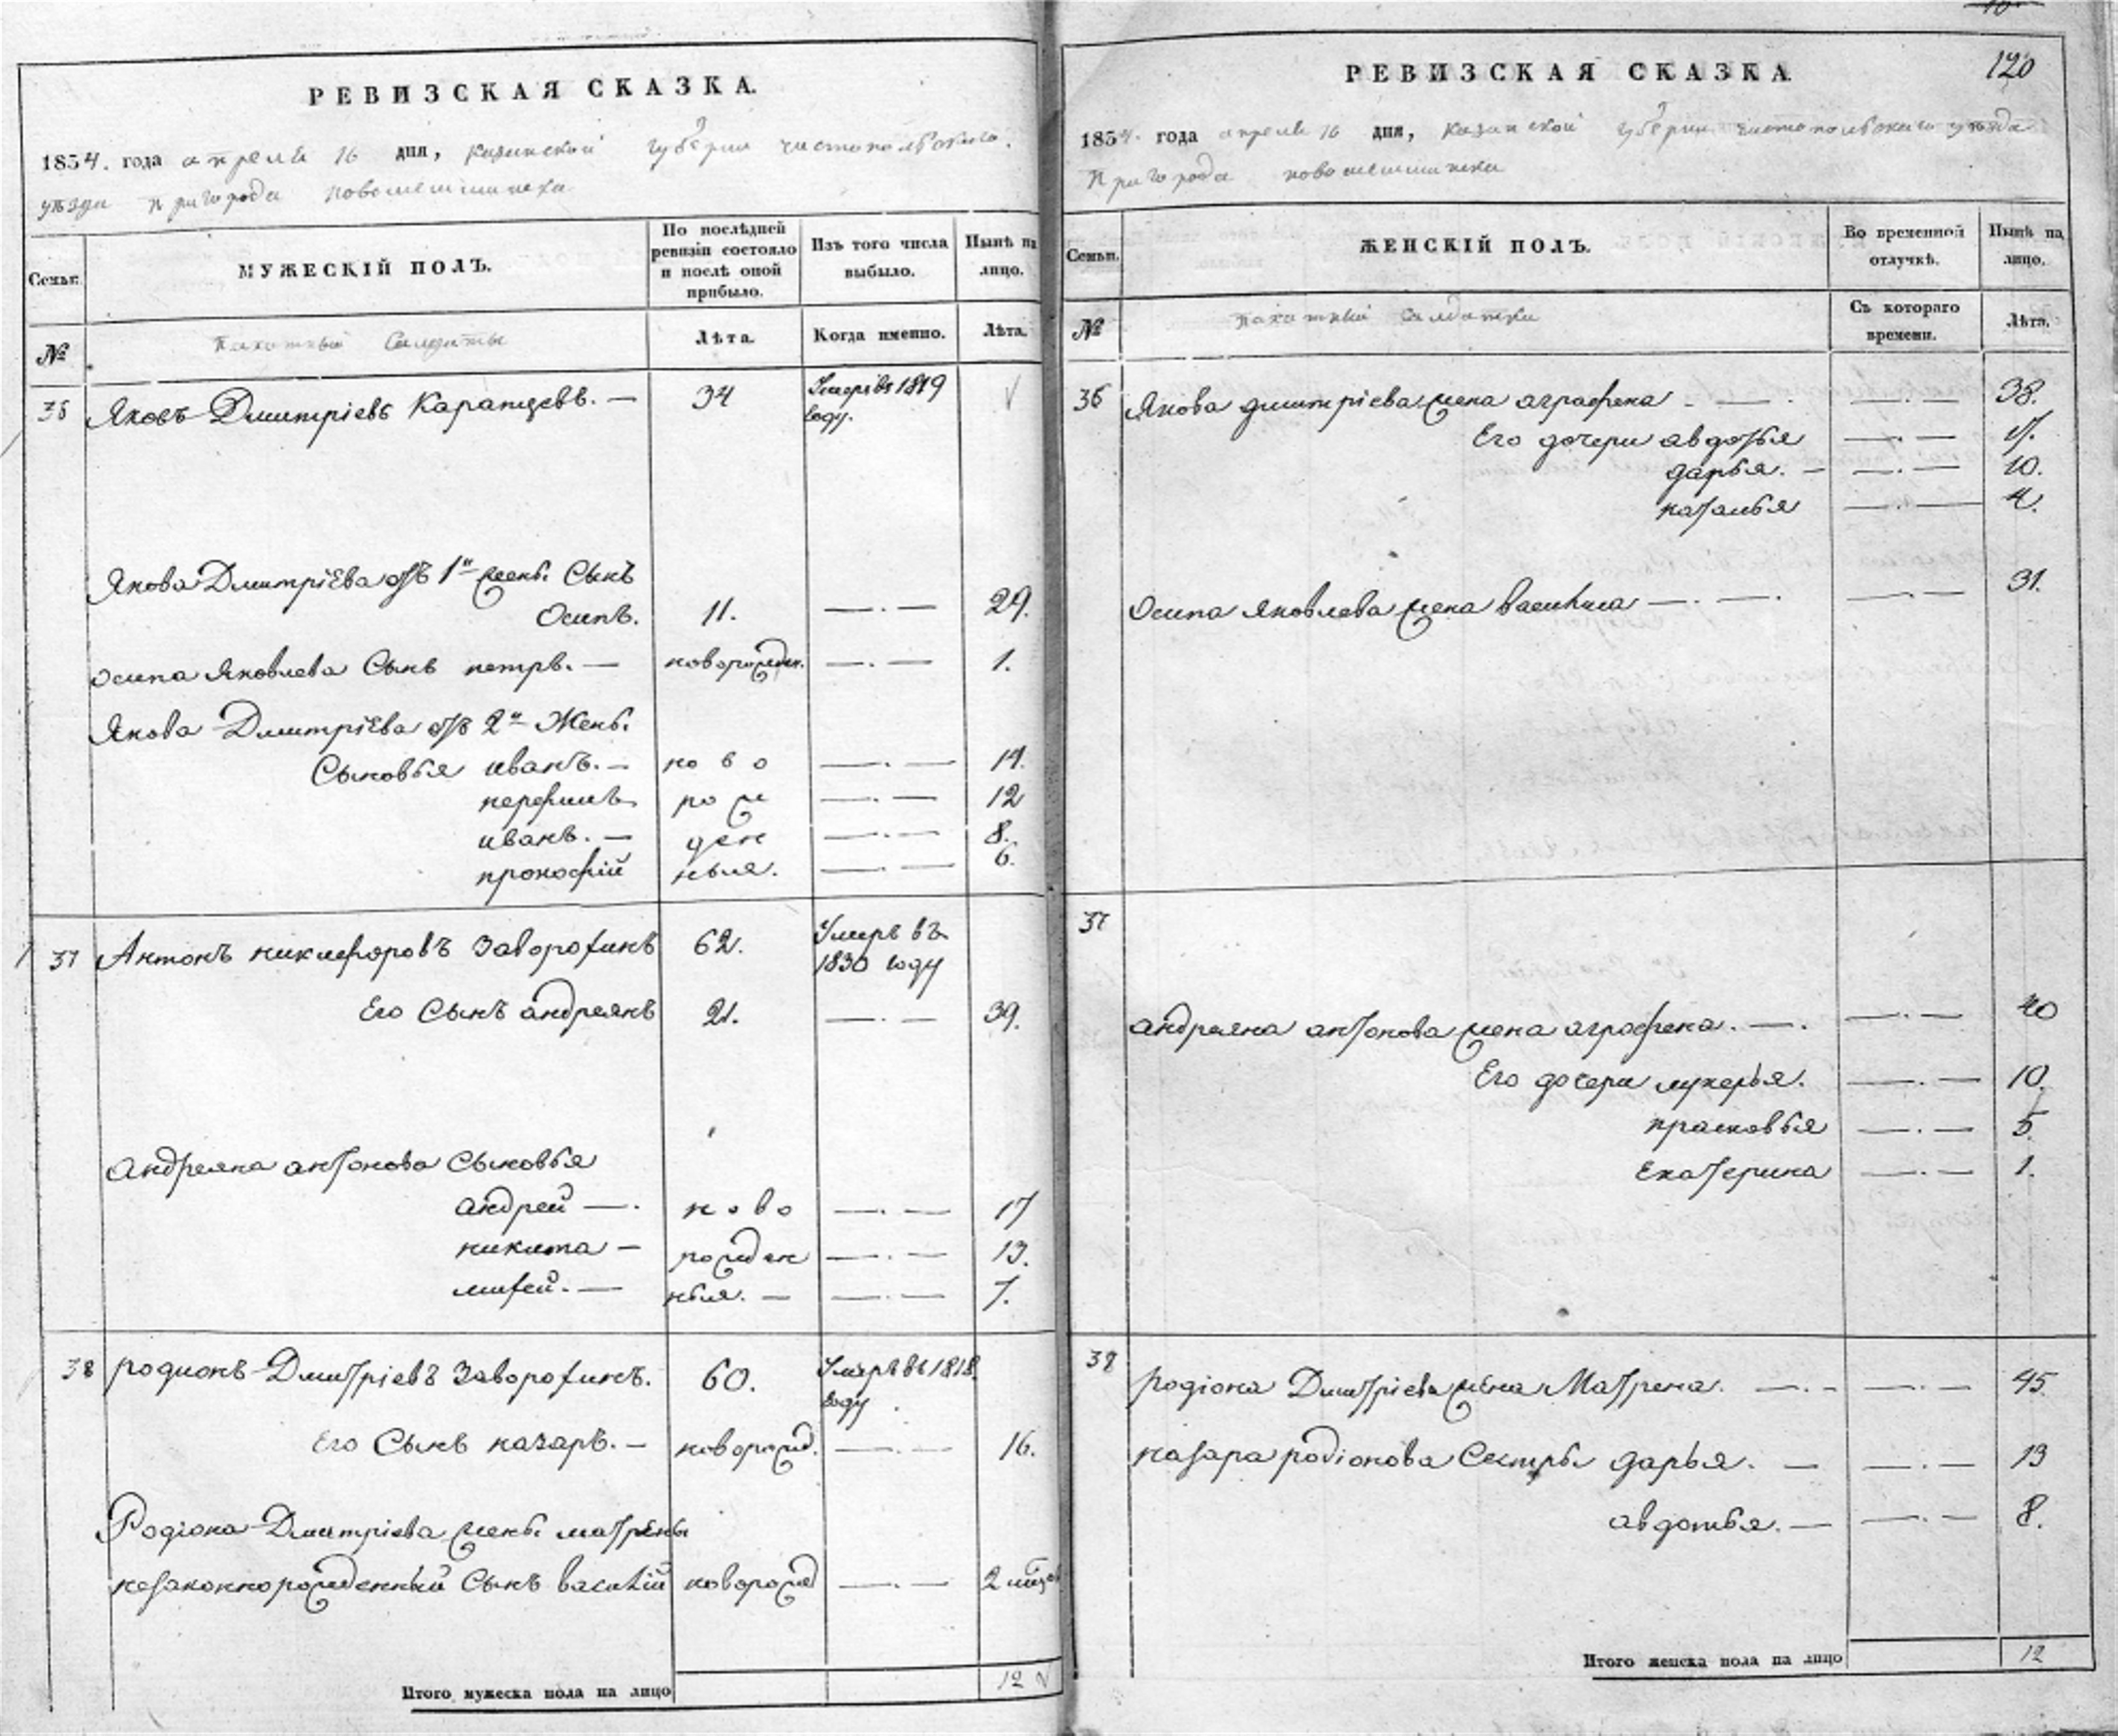 РЕВИЗСКАЯ СКАЗКА.
1834. года апреля 16 дня, казанской губернии чистопольского.
уѣзда пригорода новошешминска
Семьи.
МУЖЕСКІЙ ПОЛЪ.
По послѣдней ревизіи состояло и послѣ оной прибыло.
Изъ того числа выбыло.
Нынѣ на лицо.
№
пахотный Салдаты
Лѣта.
Когда именно.
Лѣта.
36 Яковъ Дмитріевъ Каратаевъ. — 34 Умеръ въ 1819 году.
Якова Дмитріева отъ 1й жены Сынъ
Осипъ. 11. —.— 29.
осипа Яковлева Сынъ петръ. — новорожден. —.— 1.
Якова Дмитріева отъ 2й Жены
Сыновья иванъ. — но в о —.— 14.
перфилъ ро ж —.— 12
иванъ. — ден —.— 8.
прокофій ныя. —.— 6.
37 Антонъ никифоровъ Заворотинъ 62. Умеръ въ 1830 году
Его Сынъ андреянъ 21. —.— 39.
андреяна антонова Сыновья
андрей —. н о в о —.— 17
никита — рожден —.— 13.
ныя. — —.— 7.
38 родионъ Дмитріевъ Заворотинъ. 60. Умеръ въ 1818 году
Его Сынъ назаръ. — новорожд. —.— 16.
Родіона Дмитріева жены матрены
незаконнорожденный Сынъ василій новорожд —.— 2 мѣсяц
Итого мужеска пола на лицо 12
120
РЕВИЗСКАЯ СКАЗКА
1834. года апреля 16 дня, казанской губерніи чистопольского уѣзда
пригорода новошешминска
Семьи.
ЖЕНСКІЙ ПОЛЪ.
Во временной отлучкѣ.
Нынѣ на лицо.
№
пахотный Салдатки
Съ котораго времени.
Лѣта.
36 Якова дмитріева жена аграфена —.— 38.
Его дочери авдотья —.—
дарья. — —.— 10.
наталья —.— 4.
Осипа Яковлева жена василиса —.— —.— 31.
37
андреяна антонова жена аграфена. —. —.— 40
Его дочери лукерья. —.— 10.
прасковья —.— 5.
Екатерина —.— 1.
38 родіона Дмитріева жена Матрена. —.— —.— 45.
назара родіонова Сестры дарья. — —.— 13
авдотья. — —.— 8.
Итого женска пола на лицо 12